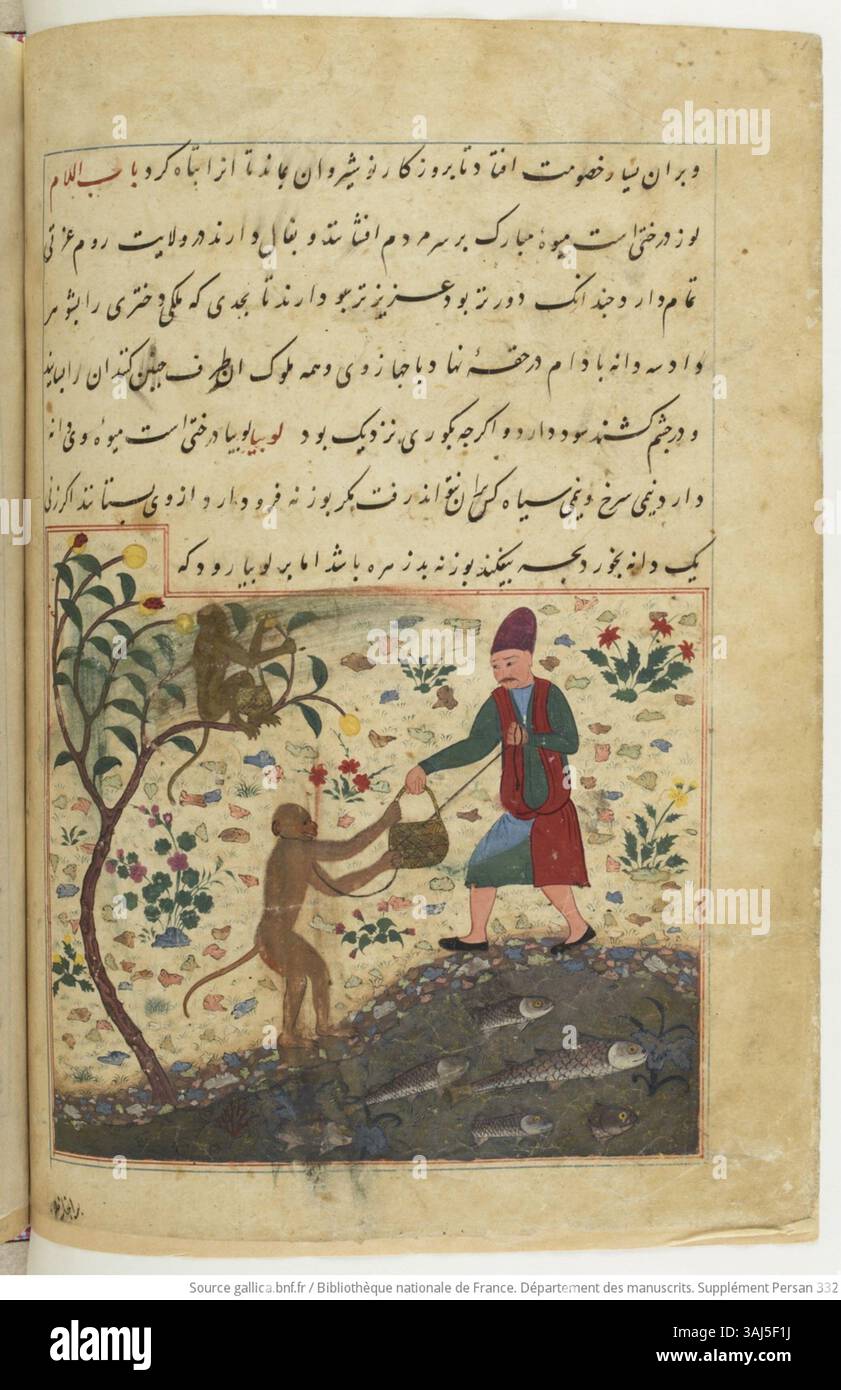 و بر ان بسیار خصومت افتاد تا بروز کار نوشیروان بماند تا انرا تباه کرد باب اللام
لوز درختی است میوهٔ مبارک بر سر مردم افشانند و بفال دارند در ولایت روم عزتی
تمام دارد و چندانک دورتر بود عزیزتر بود دارند تا بحدی که ملکی دختری را بشوهر
داد سه دانه بادام در حقهٔ نهاد با جهاز وی و همه ملوک ان طرف جشن کنند ان را بسایند
و در چشم کشند سود دارد و اگرچه بکوری نزدیک بود لوبیا لوبیا درختی است میوهٔ وی دانه
دارد نیمی سرخ و نیمی سیاه کس بران نتواند رفت مگر بوزنه فرود ارد از وی بستانند اکر زنی
یک دانه بخورد بچه بیفکند بوزنه بد زهره باشد اما بر لوبیا رود که
Source gallica.bnf.fr / Bibliothèque nationale de France. Département des manuscrits. Supplément Persan 332
alamy
Image ID: 3AJ5F1J
www.alamy.com